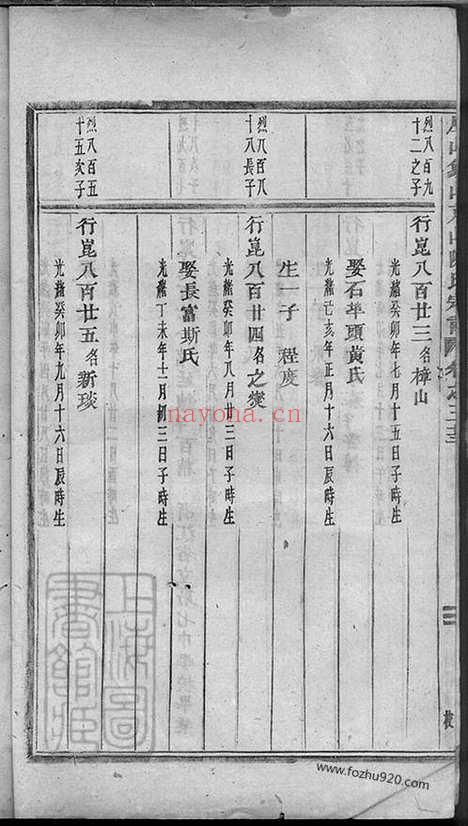 烈八百九
十二之子
行崑八百廿三名樟山
光緒癸卯年七月十五日子時生
娶石準頭黃氏
光緒亥年正月十六日辰時生
生一子 程度
烈八百八
十八長子
行崑八百廿四名之燮
光緒癸卯年八月廿三日子時生
娶長富斯氏
光緒丁未年十二月初三日子時生
烈八百五
十五次子
行崑八百廿五名新琰
光緒癸卯年九月十六日辰時生
上海圖
書館藏
nayona.cn
www.fozhu920.com